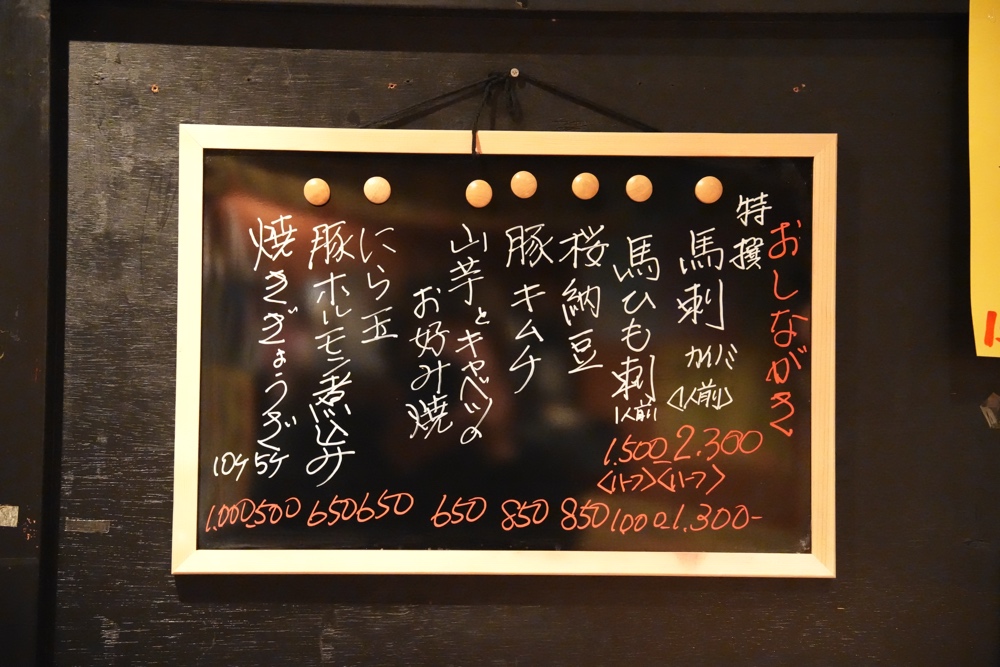 おしながき
特撰
馬刺 カイバ 〈1人前〉 2.300
〈ハーフ〉 1.300-
馬ひも刺 1人前 1.500
〈ハーフ〉 1000
桜納豆 850
豚キムチ 850
山芋とキャベツの
お好み焼 650
にら玉 650
豚ホルモン煮込み 650
焼きぎょうざ 5ケ 500
10ケ 1.000